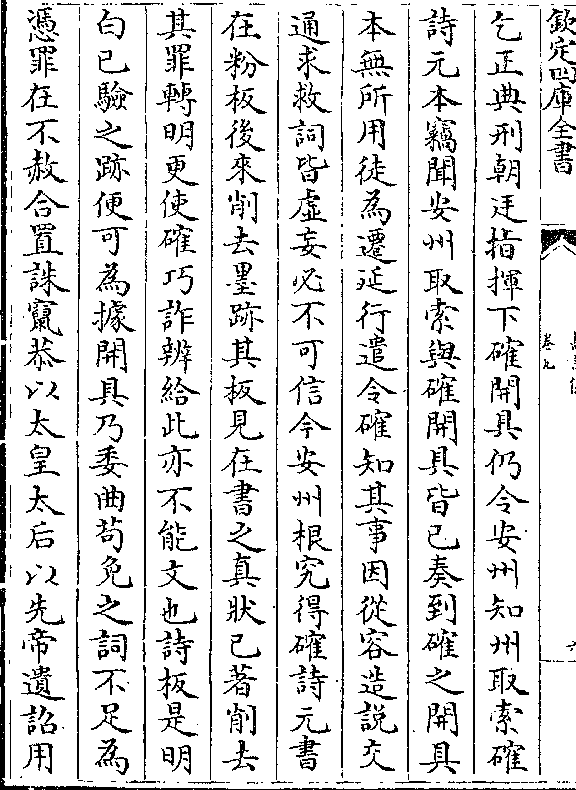 欽定四庫全書
卷九
乞正典刑朝廷指揮下確開具仍令安州知州取索確
詩元本竊聞安州取索與確開具皆已奏到確之開具
本無所用徒為遷延行遣令確知其事因從容造說交
通求救詞皆虛妄必不可信今安州根究得確詩元書
在粉板後來削去墨跡其板見在書之真狀已著削去
其罪轉明更使確巧詐辨給此亦不能文也詩板是明
白已驗之跡便可為據開具乃委曲茍免之詞不足為
憑罪在不赦合置誅竄恭以太皇太后以先帝遺詔用